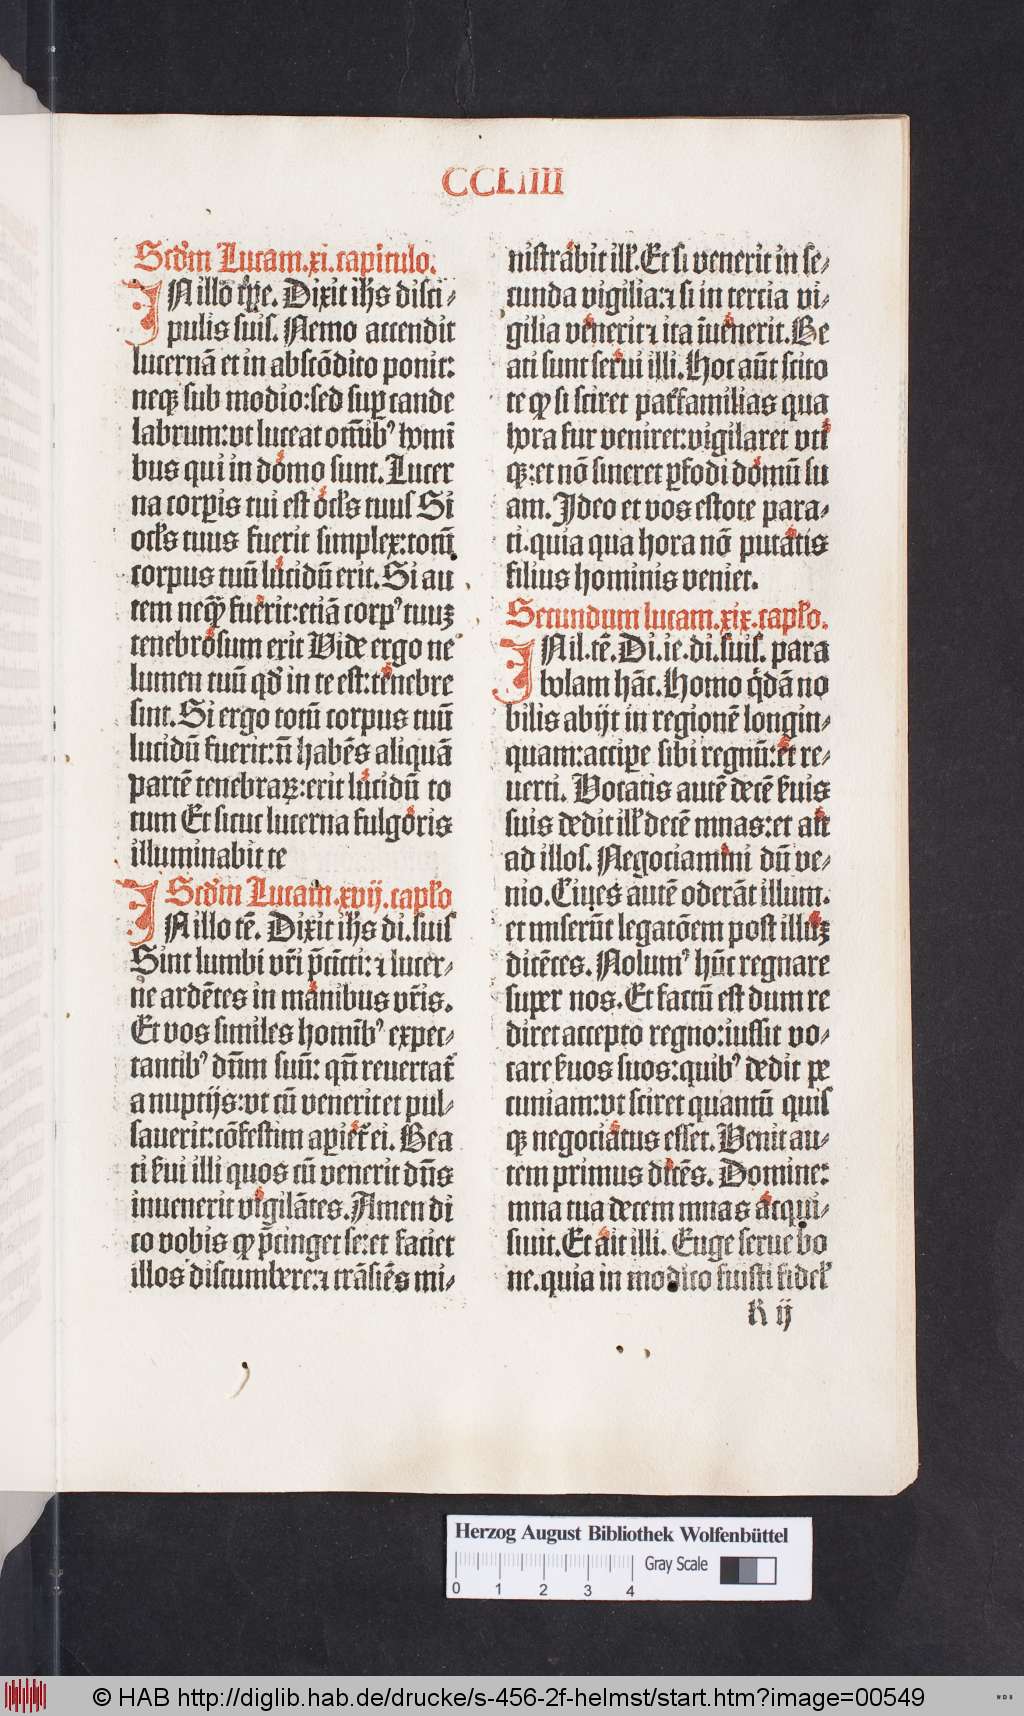 CCLIIII
Scd̄m Lucam.xi.capitulo.
IN illo tp̄e. Dixit ih̄s disci⸗
pulis suis. Nemo accendit
lucernā et in abscōdito ponit:
neqꝫ sub modio:sed sup̱ cande
labrum:vt luceat om̄ibꝰ homī
bus qui in domo sunt. Lucer
na corp̱is tui est ocl̓s tuus Si
ocl̓s tuus fuerit simplex:totū
corpus tuū lucidū erit. Si au
tem neqꝫ fuerit:etiā corpꝰ tuuꝫ
tenebrosum erit Vide ergo ne
lumen tuū qd̓ in te est:tenebre
sint. Si ergo totū corpus tuū
lucidū fuerit:n̄ habēs aliquā
partē tenebraꝝ:erit lucidū to
tum Et sicut lucerna fulgoris
illuminabit te
Scd̄m Lucam.xvij.capl̓o
IN illo tē. Dixit ih̄s di.suis
Sint lumbi vr̄i p̄cīcti:⁊ lucer⸗
ne ardētes in manibus vr̄is.
Et vos similes homībꝰ expec⸗
tantibꝰ dn̄m suū: qn̄ reuertat᷑
a nuptijs:vt cū venerit et pul⸗
sauerit:cōfestim aperiēt ei. Bea
ti ẜui illi quos cū venerit dn̄s
inuenerit vigilātes. Amen di
co vobis ꝙ p̄cinget se:et faciet
illos discumbere:⁊ trāsiēs mi⸗
nistrabit ill̓. Et si venerit in se⸗
cunda vigilia:⁊ si in tercia vi⸗
gilia venerit ⁊ ita īuenerit. Be
ati sunt serui illi. Hoc aūt scito
te ꝙ si sciret pat̓familias qua
hora fur veniret:vigilaret vti
qꝫ:et nō sineret p̱fodi domū su
am. Ideo et vos estote para⸗
ti.quia qua hora nō putatis
filius hominis veniet.
Secundum lucam.xix.capl̓o.
IN il.tē. Di.ie.di.suis. para
bolam hāc. Homo qͥdā no
bilis abijt in regionē longin⸗
quam:accipe sibi regnū:et re⸗
uerti. Vocatis autē decē ẜuis
suis dedit ill̓ decē mnas:et ait
ad illos. Negociamini dū ve⸗
nio. Ciues autē oderāt illum.
et miserūt legatōem post illuꝫ
dicētes. Nolumꝰ hūc regnare
super nos. Et factū est dum re
diret accepto regno:iussit vo⸗
care ẜuos suos:quibꝰ dedit pe
cuniam:vt sciret quantū quis
qꝫ negociatus esset. Venit au⸗
tem primus dicēs. Domine:
mna tua decem mnas acqui⸗
siuit. Et ait illi. Euge serue bo
ne.quia in modico fuisti fidel̓
R ij
Herzog August Bibliothek Wolfenbüttel
Gray Scale
0 1 2 3 4
© HAB http://diglib.hab.de/drucke/s-456-2f-helmst/start.htm?image=00549